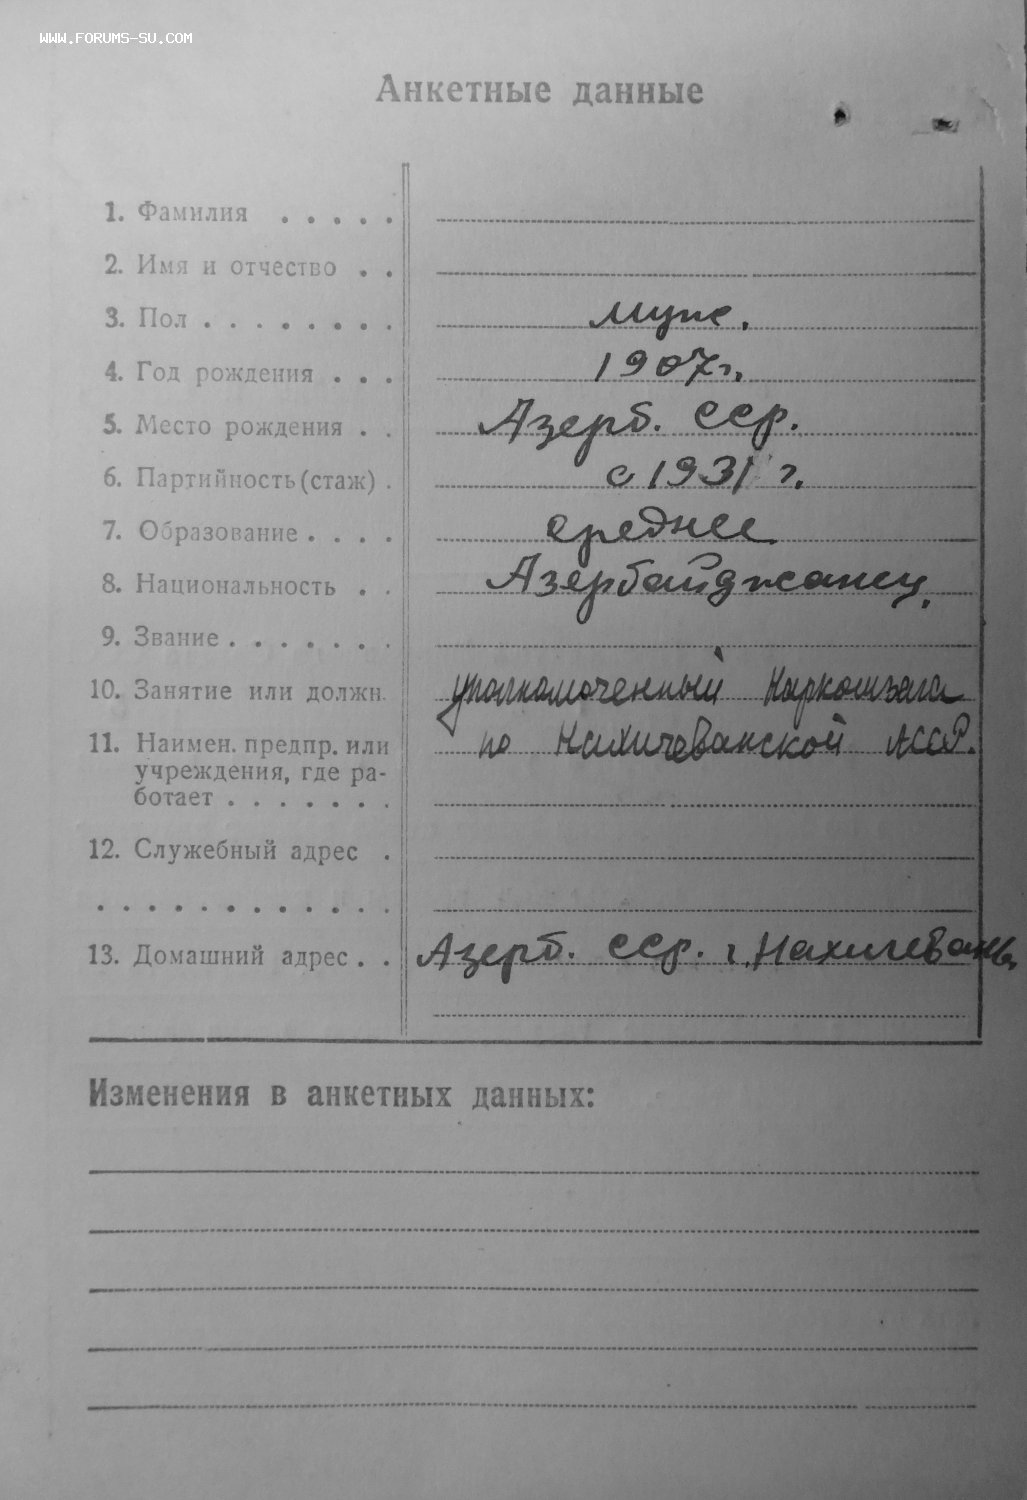 WWW.FORUMS-SU.COM
Анкетные данные
1. Фамилия . . . . .
2. Имя и отчество . .
3. Пол . . . . . . . . муж.
4. Год рождения . . . 1907 г.
5. Место рождения . . Азерб. ССР.
6. Партийность (стаж) . с 1931 г.
7. Образование . . . . среднее
8. Национальность . . Азербайджанец.
9. Звание . . . . . . .
10. Занятие или должн. уполномоченный Наркомзага
11. Наимен. предпр. или по Нахичеванской АССР.
учреждения, где ра-
ботает . . . . . . .
12. Служебный адрес .
. . . . . . . . . . . .
13. Домашний адрес . . Азерб. ССР. г. Нахичевань,
Изменения в анкетных данных: